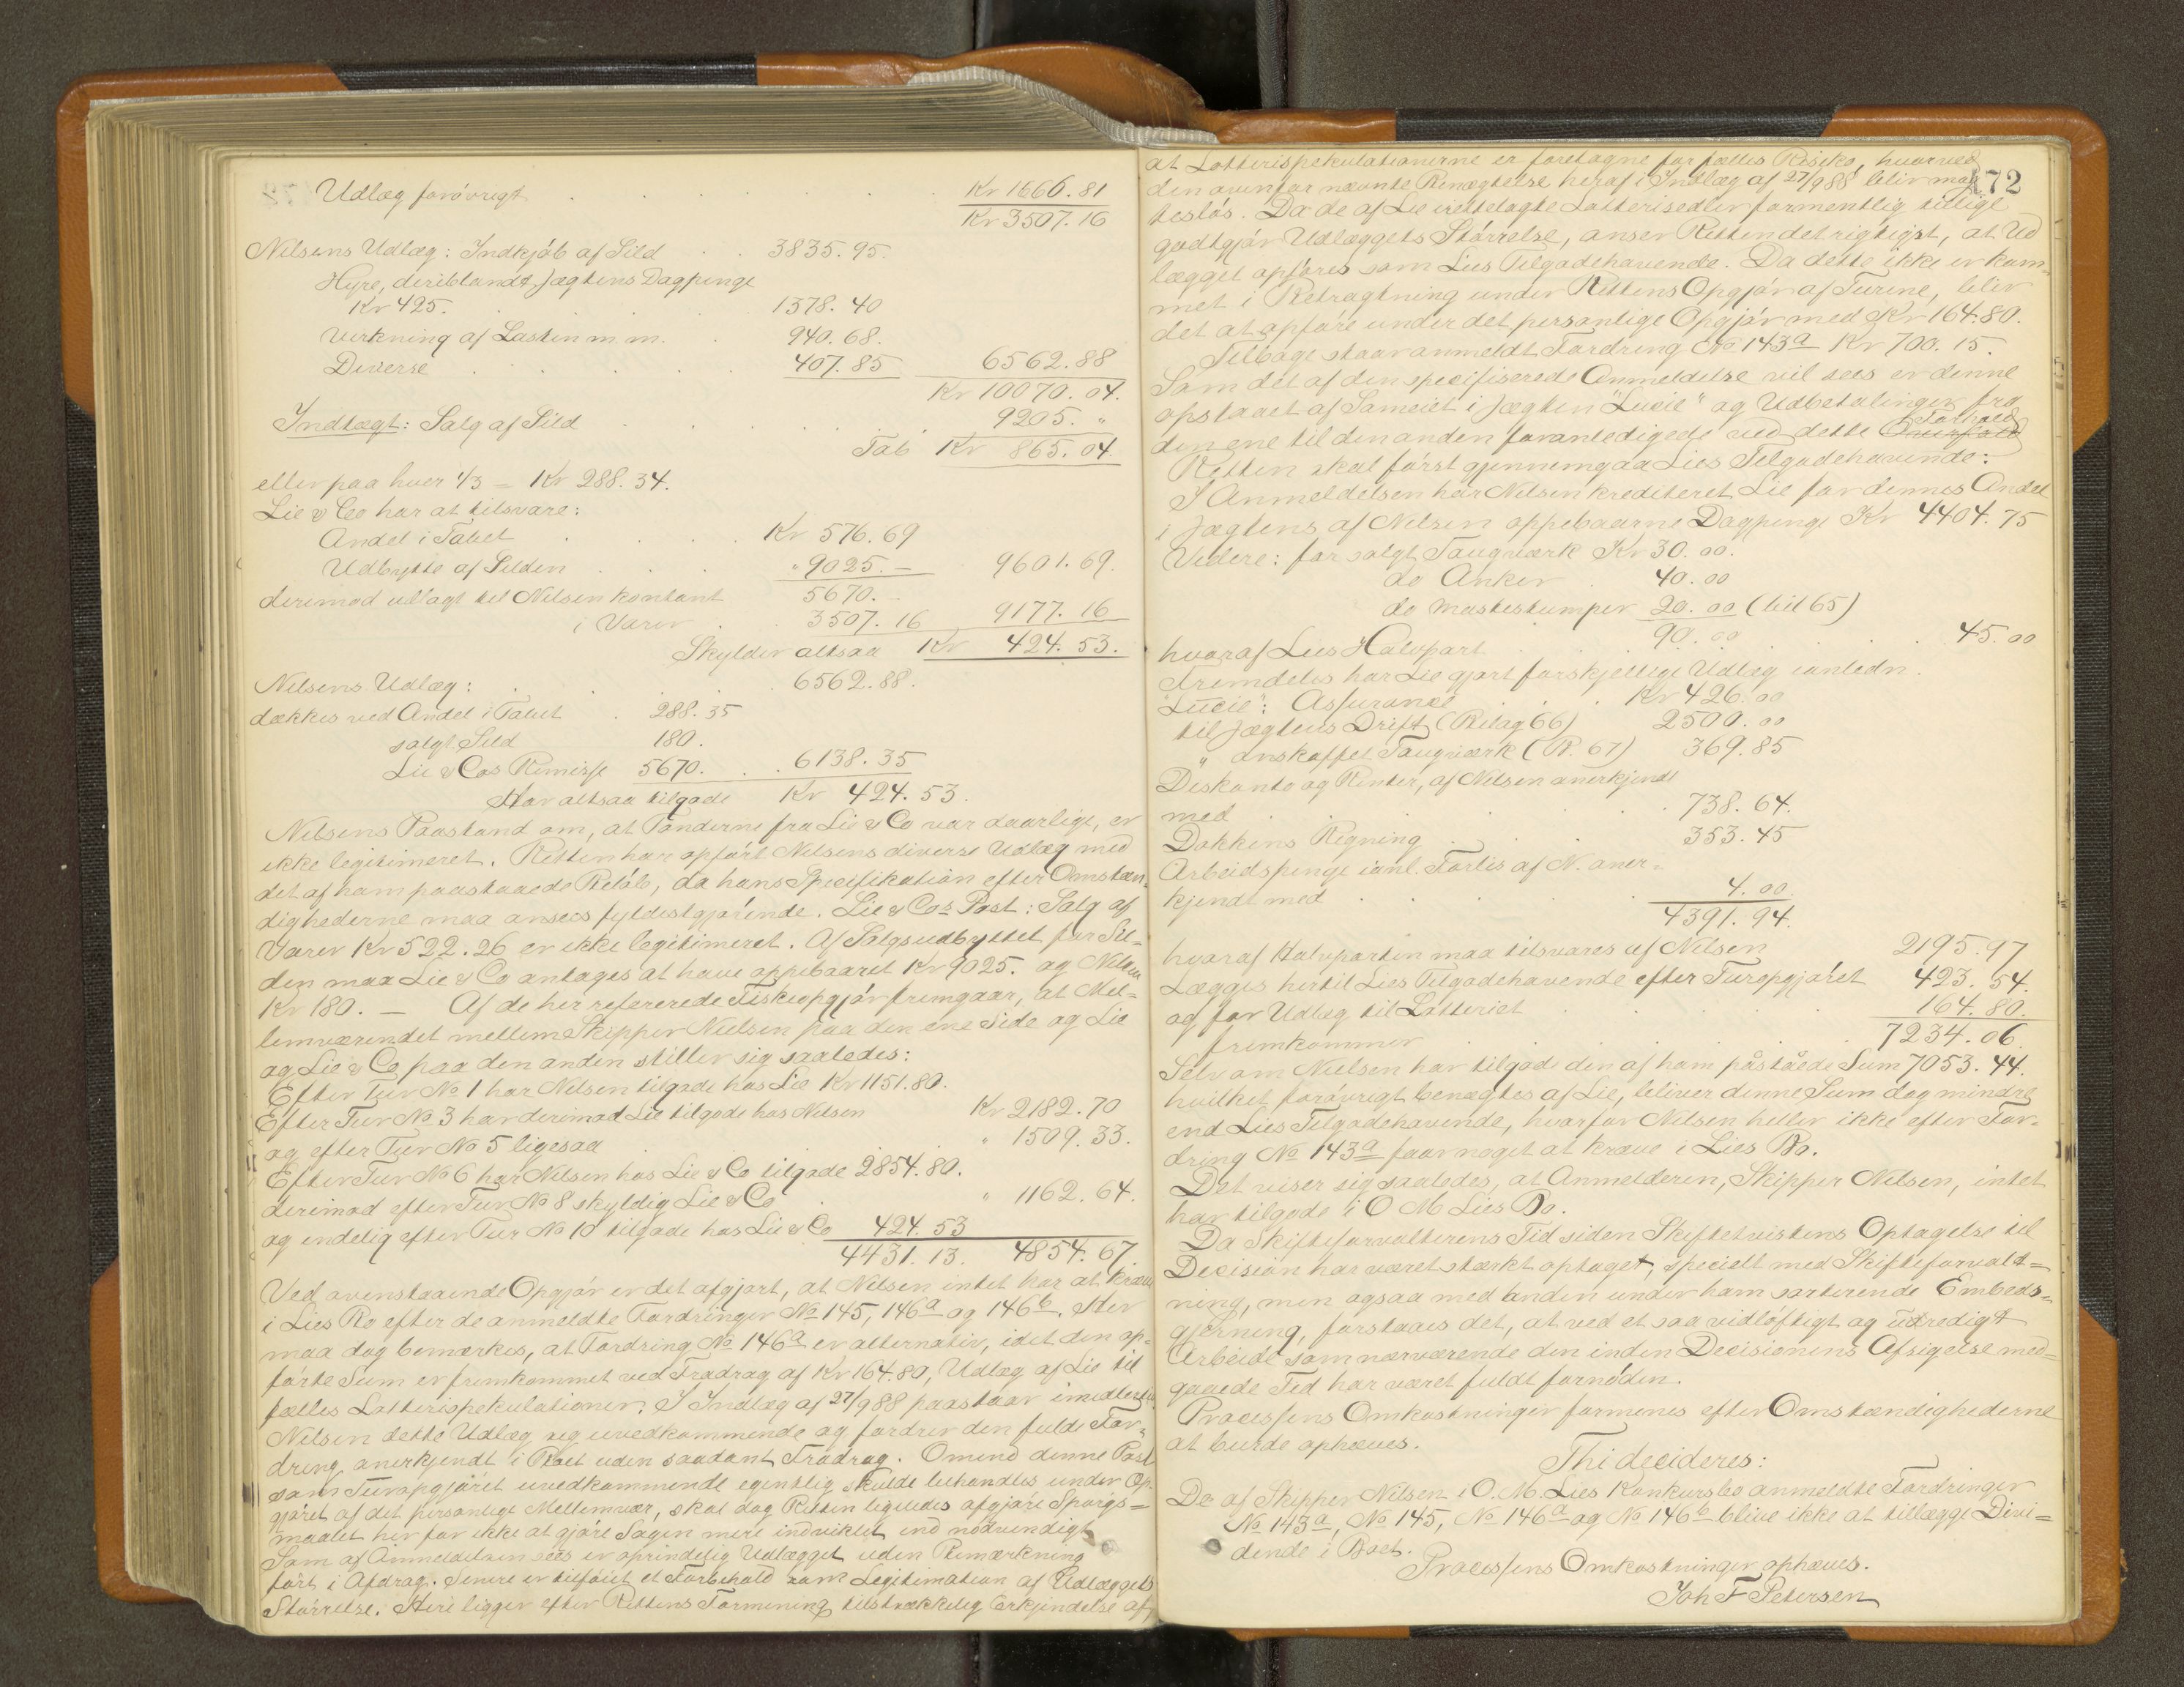 Udlæg forøvrigt . . . . . . Kr 1666.81
Kr 3507.16
Nilsens Udlæg: Indkjøb af Sild . . 3835.95.
Hyre, deriblandt Jægtens Dagpenge
Kr 425. . . . . 1378.40
Virkning af Lasten m. m. . 940.68.
Diverse . . . . . . 407.85 6562.88
Kr 10070.04.
Indtægt: Salg af Sild . . . . . . 9205. "
Tab Kr 865.04
eller paa hver 1/3 = Kr 288.34.
Lie & Co har at tilsvare:
Andel i Tabet . . . . Kr 576.69
Udbytte af Silden . . . " 9025.— 9601.69.
derimod udlagt til Nilsen kontant 5670.
i Varer . . 3507.16 9177.16
Skylder altsaa Kr 424.53.
Nilsens Udlæg: . . . . 6562.88.
dækkes ved Andel i Tabet . 288.35
solgt Sild 180.
Lie & Cos Remisse 5670. . . 6138.35
Har altsaa tilgode Kr 424.53.
Nilsens Paastand om, at Tønderne fra Lie & Co var daarlige, er
ikke legitimeret. Retten har opført Nilsens diverse Udlæg med
det af ham paastaaede Beløb, da hans Specifikation efter Omstæn-
dighederne maa ansees fyldestgjørende. Lie & Cos Post: Salg af
Varer Kr 522.26 er ikke legitimeret. Af Salgsudbyttet for Sil-
den maa Lie & Co antages at have oppebaaret Kr 9025. og Nilsen
Kr 180. — Af de her refererede Fiskeopgjør fremgaar, at Mel-
lemværendet mellem Skipper Nielsen paa den ene Side og Lie
og Lie & Co paa den anden stiller sig saaledes:
Efter Tur No 1 har Nilsen tilgode hos Lie Kr 1151.80.
Efter Tur No 3 har derimod Lie tilgode hos Nilsen Kr 2182.70
og efter Tur No 5 ligesaa . . . . " 1509.33.
Efter Tur No 6 har Nilsen hos Lie & Co tilgode 2854.80.
derimod efter Tur No 8 skyldig Lie & Co . . " 1162.64.
og endelig efter Tur No 10 tilgode hos Lie & Co 424.53
4431.13. 4854.67.
Ved ovenstaaende Opgjør er det afgjort, at Nilsen intet har at kræve
i Lies Bo efter de anmeldte Fordringer No 145, 146a og 146b. Her
maa dog bemærkes, at Fordring No 146a er alternativ, idet den op-
førte Sum er fremkommet ved Fradrag af Kr 164.80, Udlæg af Lie til
fælles Lotterispekulationer. I Indlæg af 27/9 88 paastaar imidlertid
Nilsen dette Udlæg sig uvedkommende og fordrer den fulde For-
dring anerkjendt i Boet uden saadant Fradrag. Omend denne Post
som Turopgjøret uvedkommende egentlig skulde behandles under Op-
gjøret af det personlige Mellemvær, skal dog Retten ligeledes afgjøre Spørgs-
maalet her for ikke at gjøre Sagen mere indviklet end nødvendigt.
Som af Anmeldelsen sees er oprindelig Udlægget uden Bemærkning
ført i Afdrag. Senere er tilføiet et Forbehold som Legitimation af Udlæggets
Størrelse. Heri ligger efter Rettens Formening tilstrækkelig Erkjendelse af,
172
at Lotterispekulationerne er foretagne for fælles Risiko, hvorved
den ovenfor nævnte Benægtelse heraf i Indlæg af 27/9 88 blir mag-
tesløs. Da de af Lie irettelagte Lotterisedler formentlig tillige
godtgjør Udlæggets Størrelse, anser Retten det rigtigst, at Ud
lægget opføres som Lies Tilgodehavende. Da dette ikke er kom-
met i Betragtning under Rettens Opgjør af Turene, blir
det at opføre under det personlige Opgjør med Kr 164.80.
Tilbage staar anmeldt Fordring No 143a Kr 700.15.
Som det af den specifiserede Anmeldelse vil sees er denne
opstaaet af Sameiet i Jægten "Lucie" og Udbetalinger fra
den ene til den anden foranledigede ved dette Forhold
Retten skal først gjennemgaa Lies Tilgodehavende:
I Anmeldelsen har Nilsen krediteret Lie for dennes Andel
i Jægtens af Nilsen oppebaarne Dagpenge Kr 4404.75
Videre: for solgt Taugværk Kr 30.00.
do Anker . 40.00
do Mastestumper 20.00 (bil 65)
90.00
hvoraf Lies Halvpart . . . . . . 45.00
Fremdeles har Lie gjort forskjellige Udlæg ianledn.
"Lucie": Assurance . . . Kr 426.00
til Jægtens Drift (Bilag 66) 2500.00
" anskaffet Taugværk (B. 67) 369.85
Diskonto og Renter, af Nilsen anerkjendt
med . . . . . . 738.64.
Dokkens Regning . . . . 353.45
Arbeidspenge ianl. Forlis af N. aner-
kjendt med . . . . . 4.00.
4391.94.
hvoraf Halvparten maa tilsvares af Nilsen 2195.97
Lægges hertil Lies Tilgodehavende efter Turopgjøret 423.54.
og for Udlæg til Lotteriet . . . . 164.80.
fremkommer . . . . . . 7234.06.
Selv om Nielsen har tilgode den af ham påståede Sum 7053.44.
hvilket forøvrigt benægtes af Lie, bliver denne Sum dog mindre
end Lies Tilgodehavende, hvorfor Nilsen heller ikke efter For-
dring No 143a faar noget at kræve i Lies Bo.
Det viser sig saaledes, at Anmelderen, Skipper Nilsen, intet
har tilgode i O M Lies Bo.
Da Skifteforvalterens Tid siden Skiftetvistens Optagelse til
Decision har været stærkt optaget, specielt med Skifteforvalt-
ning, men ogsaa med anden under ham sorterende Embeds-
gjerning, forstaaes det, at ved et saa vidløftigt og udredigt
Arbeide som nærværende den inden Decisionens Afsigelse med-
gaaede Tid har været fuldt fornøden.
Processens Omkostninger formenes efter Omstændighederne
at burde ophæves.
Thi decideres:
De af Skipper Nilsen i O. M. Lies Konkursbo anmeldte Fordringer
No 143a, No 145, No 146a og No 146b blive ikke at tillægge Divi-
dende i Boet.
Processens Omkostninger ophæves.
Joh F Petersen